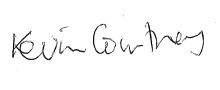 Kevin Courtney